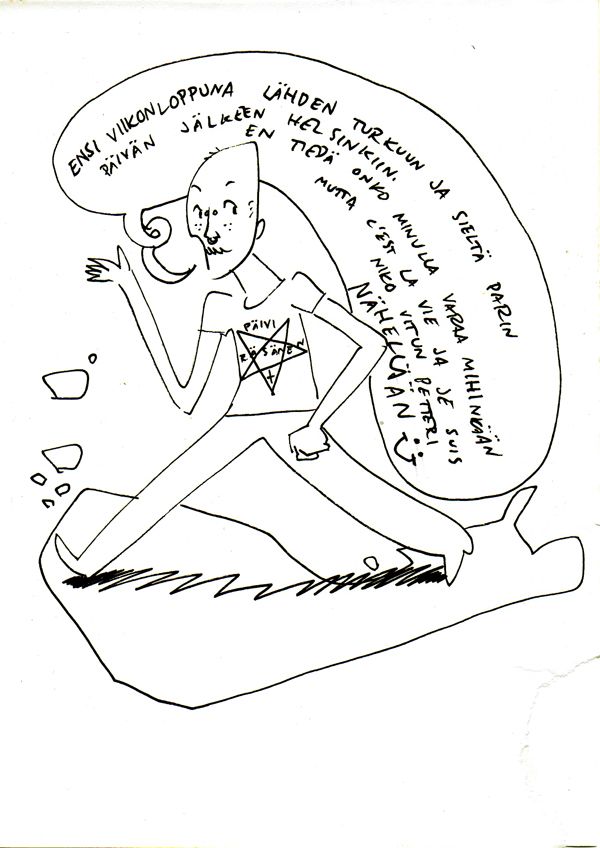 ENSI VIIKONLOPPUNA LÄHDEN TURKUUN JA SIELTÄ PARIN
PÄIVÄN JÄLKEEN HELSINKIIN.
EN TIEDÄ ONKO MINULLA VARAA MIHINKÄÄN
MUTTA C'EST LA VIE JA JE SUIS
NIKO VITUN PETTERI
NÄHELLÄÄN :)
PÄIVI
RÄSÄNEN